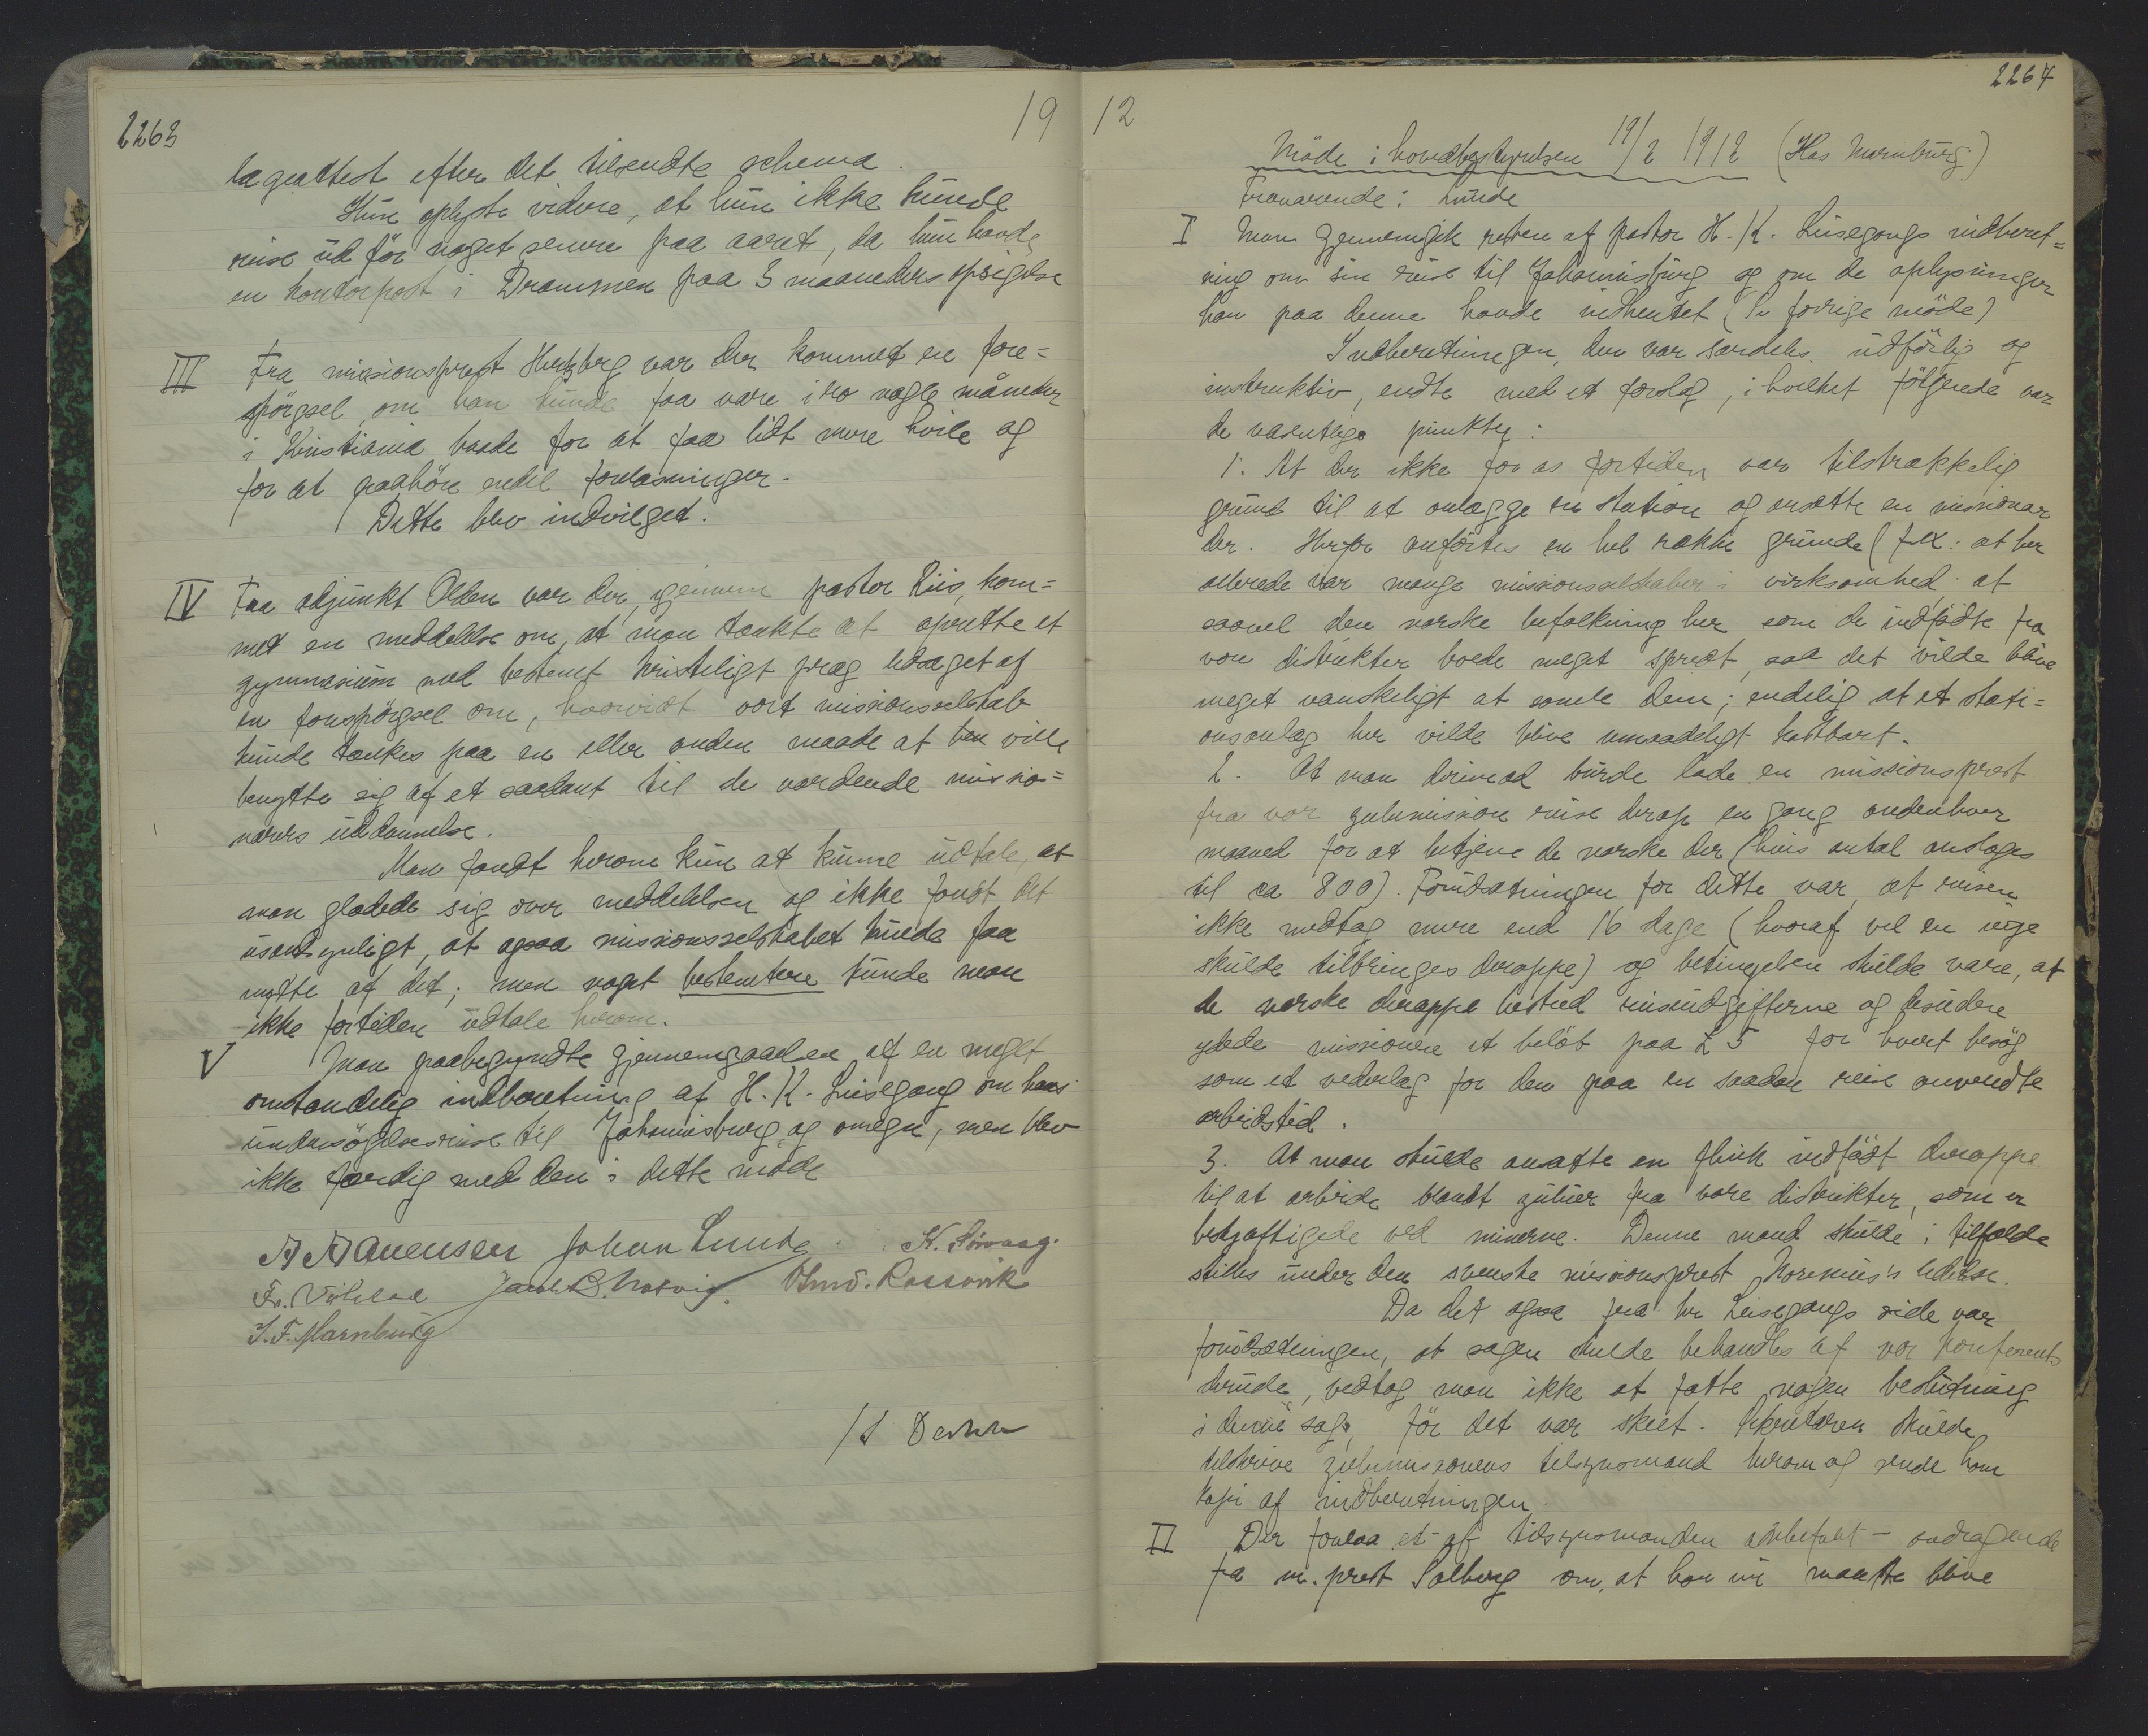 2263
19
lægeattest efter det tilsendte schema.
Hun oplyste videre, at hun ikke kunde
reise ud før noget senere paa aaret, da hun havde
en kontorpost i Drammen paa 3 maaneders opsigelse
III Fra missionsprest Hertzberg var der kommet en fore=
spørgsel, om han kunde faa være i ro nogle måneder
i Kristiania baade for at faa lidt mere hvile og
for at paahøre endel forelæsninger.
Dette blev indvilget.
IV Fra adjunkt Olden var der, gjennem pastor Riis, kom=
met en meddelelse om, at man tænkte at oprette et
gymnasium med bestemt kristeligt præg ledsaget af
en forespørgsel om, hvorvidt vort missionsselskab
kunde tænkes paa en eller anden maade at ville
benytte sig af et saadant til de vordende missio=
nærers uddannelse.
Man fandt herom kun at kunne udtale, at
man glædede sig over meddelelsen og ikke fandt det
usandsynligt, at ogsaa missionsselskabet kunde faa
nytte af det; men noget bestemtere kunde man
ikke fortiden udtale herom.
V Man paabegyndte gjennemgaaelsen af en meget
omstændelig indberetning af H. K. Leisegang om hans
undersøgelsesreise til Johannisburg og omegn, men blev
ikke færdig med den i dette møde
A Aanensen Johan Lunde K. Sørvaag.
Fr. Jacob B. Natvig. Rossvik
J. F. Marnburg
/ L Dahle
12
2264
Møde i hovedbestyrelsen 19/2 1912 (Hos Marnburg)
Fraværende: Lunde
I Man gjennemgik resten af pastor H. K. Leisegangs indberet=
ning om sin reise til Johannisburg og om de oplysninger
han paa denne havde indhentet (Se forrige møde)
Indberetningen, der var særdeles udførlig og
instruktiv, endte med et forslag, i hvilket følgende var
de væsentlige punkter:
1. At der ikke for os fortiden var tilstrækkelig
grund til at anlægge en station og ansætte en missionær
der. Herfor anførtes en hel række grunde (f.ex: at her
allerede var mange missionsselskaber i virksomhed; at
saavel den norske befolkning her som de indfødte fra
vore distrikter boede meget spredt, saa det vilde blive
meget vanskeligt at samle dem; endelig at et stati=
onsanlæg her vilde blive umaadeligt kostbart.
2. At man derimod burde lade en missionsprest
fra vor zulumission reise derop en gang andenhver
maaned for at betjene de norske der (hvis antal ansloges
til ca 800). Forudsætningen for dette var, at reisen
ikke medtog mere end 16 dage (hvoraf vel en uge
skulde tilbringes deroppe) og betingelsen skulde være, at
de norske deroppe bestred reiseudgifterne og desuden
ydede missionen et beløb paa £ 5 for hvert besøg
som et vederlag for den paa en saadan reise anvendte
arbeidstid.
3. At man skulde ansætte en flink indfødt deroppe
til at arbeide blandt zuluer fra vore distrikter, som er
beskjæftigede ved minerne. Denne mand skulde i tilfælde
stilles under den svenske missionsprest Norenius's ledelse.
Da det ogsaa fra hr Leisegangs side var
forudsætningen, at sagen skulde behandles af vor konferents
dernede, vedtog man ikke at fatte nogen beslutning
i denne sag, før det var skeet. Sekretæren skulde
tilskrive zulumissionens tilsynsmand herom og sende ham
kopi af indberetningen.
II Der forelaa et - af tilsynsmanden anbefalt - andragende
fra m. prest Solberg om, at han nu maatte blive